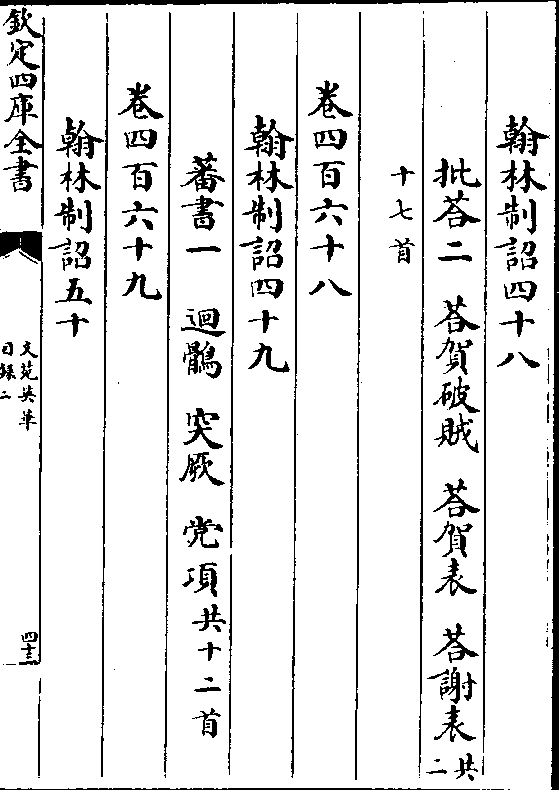 翰林制詔四十八
批荅二　荅賀破賊　荅賀表　荅謝表共二
十七首
卷四百六十八
翰林制詔四十九
蕃書一　迴鶻　突厥　党項共十二首
卷四百六十九
翰林制詔五十
欽定四庫全書
文苑英華
目録二
四十三